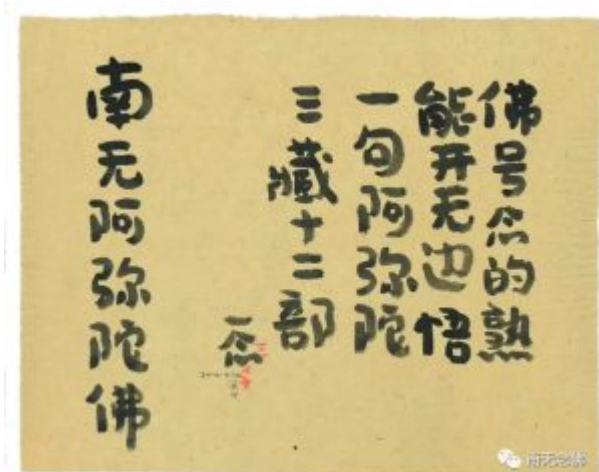 佛号念的熟
能开无边悟
一句阿弥陀
三藏十二部
一念
南无阿弥陀佛
南无念佛